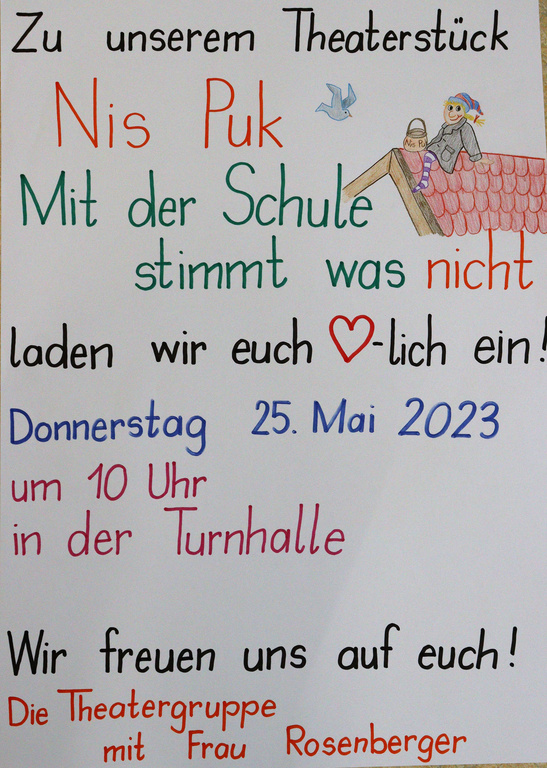 Zu unserem Theaterstück
Nis Puk
Nis Puk
Mit der Schule
stimmt was nicht
laden wir euch ♡-lich ein!
Donnerstag 25. Mai 2023
um 10 Uhr
in der Turnhalle
Wir freuen uns auf euch!
Die Theatergruppe
mit Frau Rosenberger